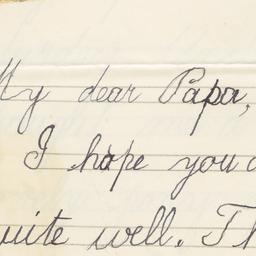 My dear Papa,
I hope you a
uite well. Th